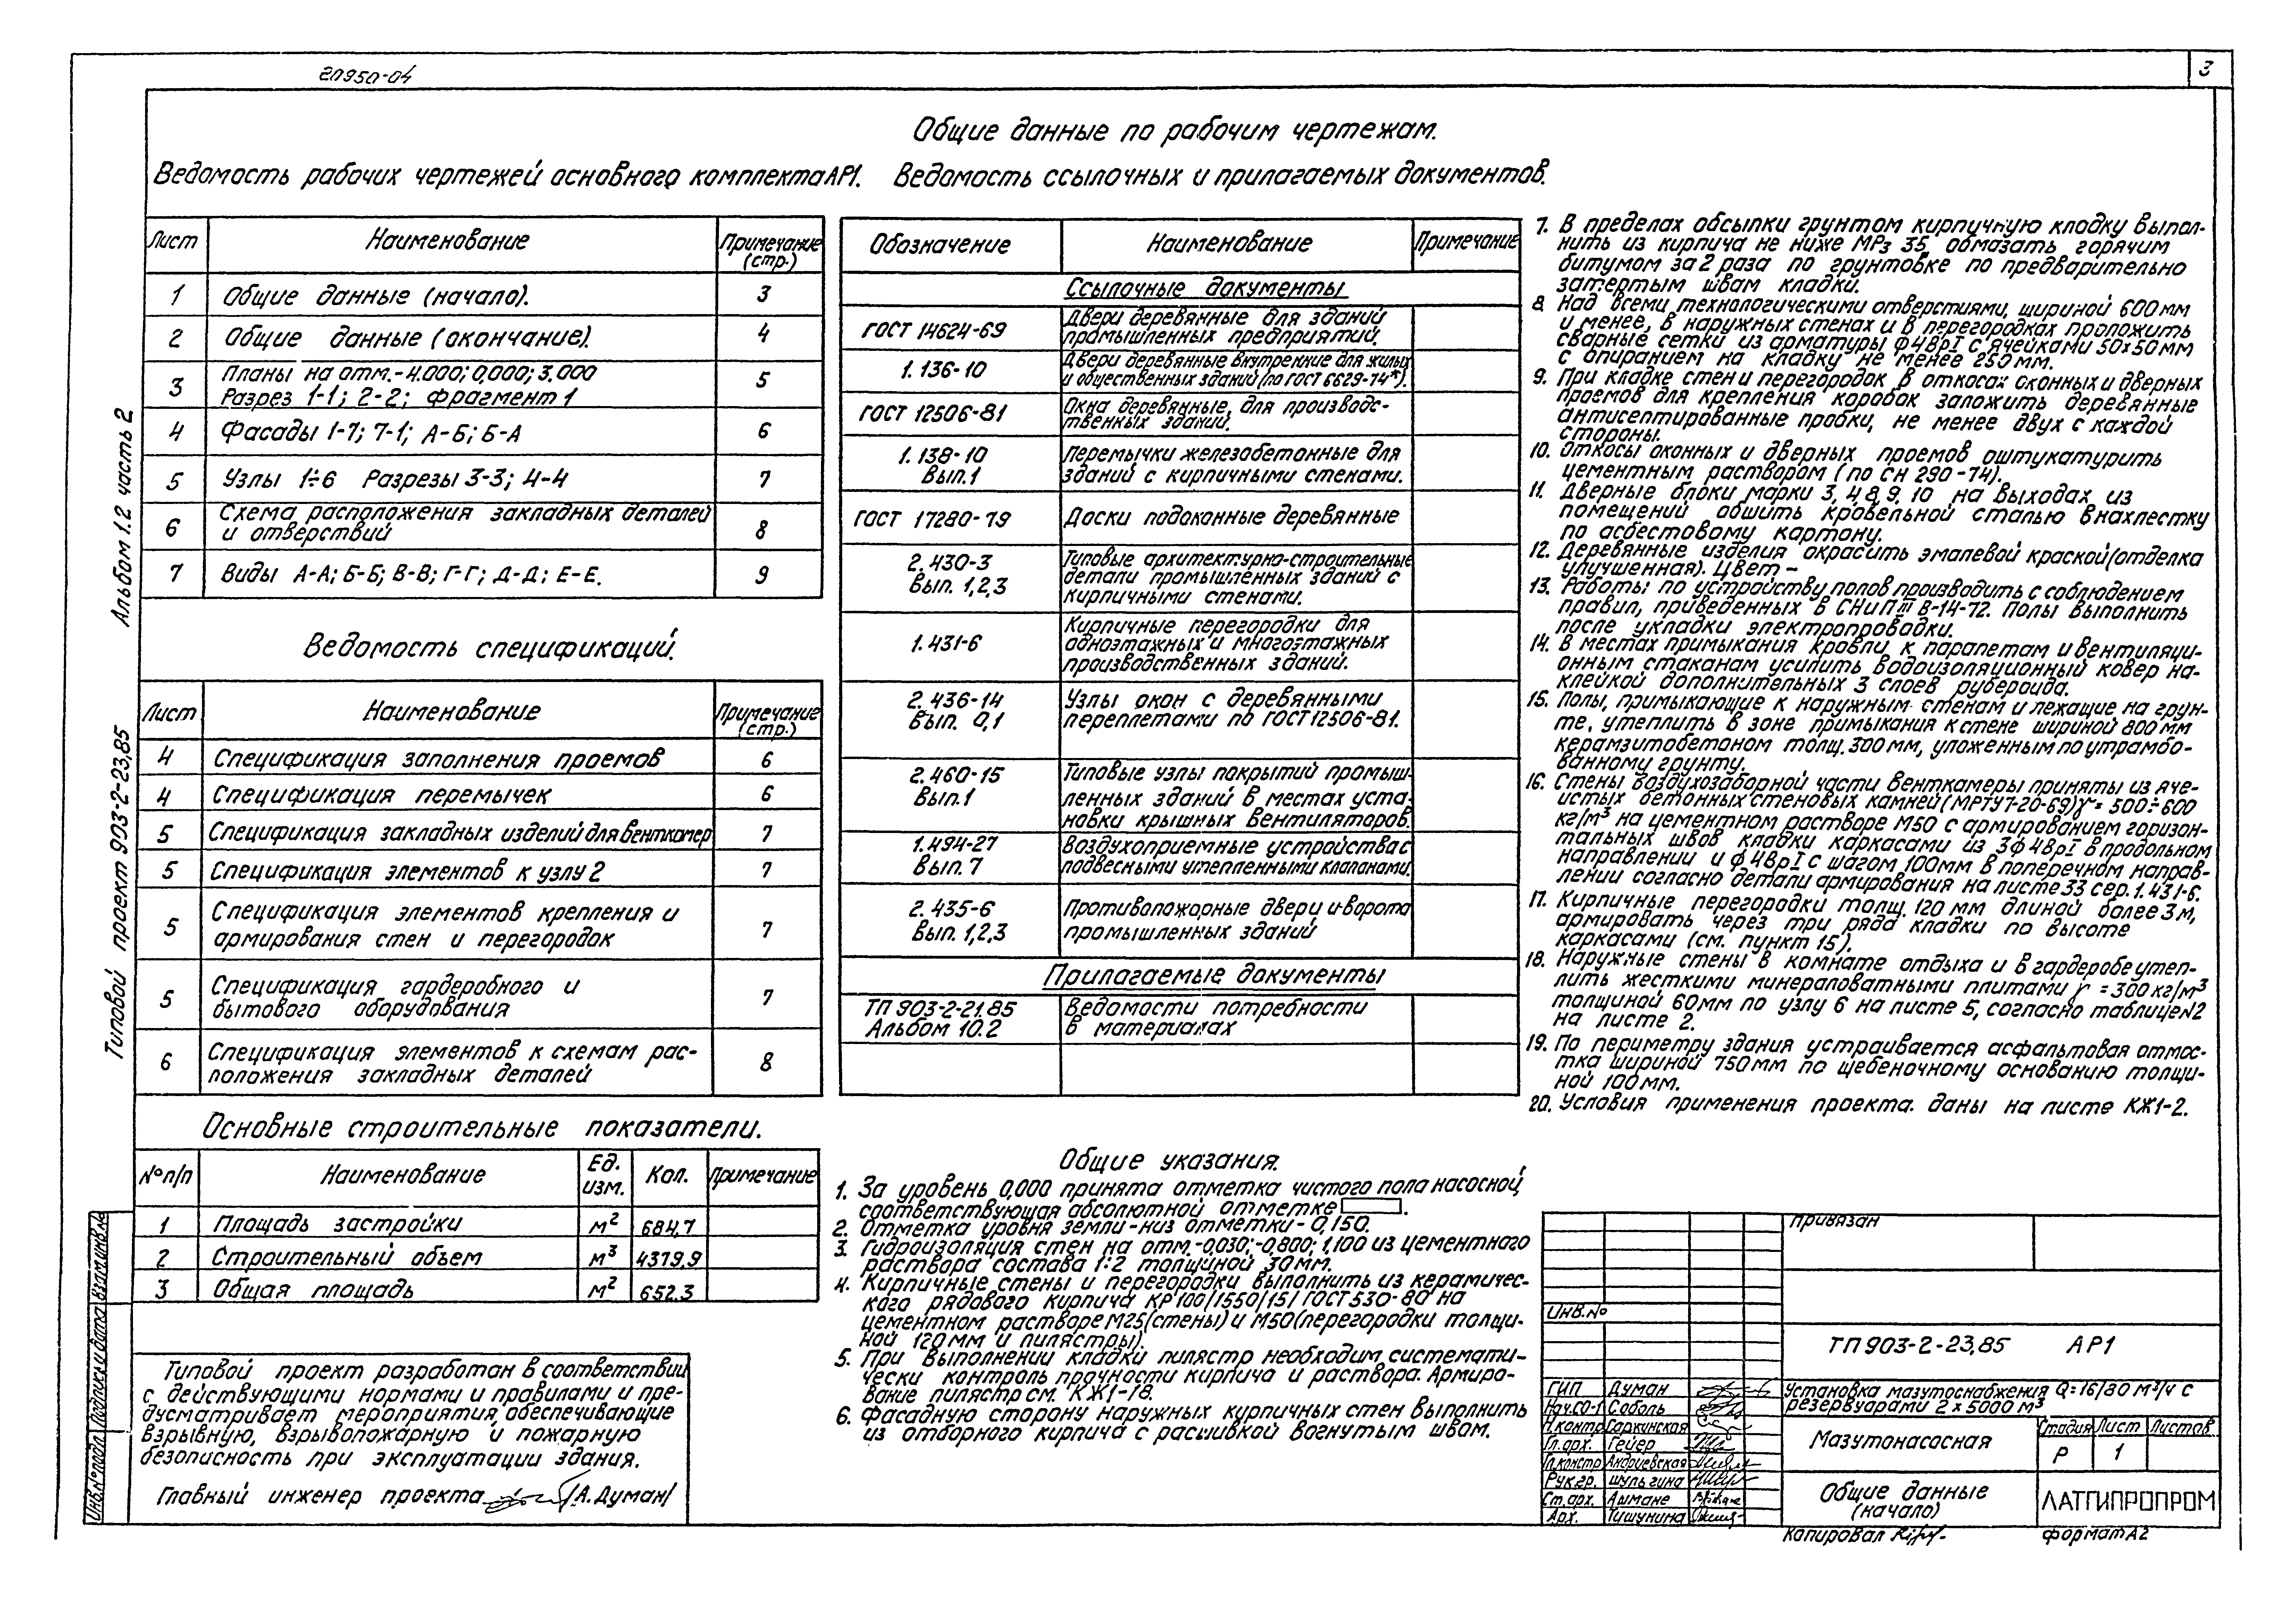 20950-04
3
Общие данные по рабочим чертежам.
Ведомость рабочих чертежей основного комплекта АР1.
Лист Наименование Примечание (стр.)
1 Общие данные (начало). 3
2 Общие данные (окончание). 4
3 Планы на отм.-4.000; 0,000; 3.000
Разрез 1-1; 2-2; фрагмент 1 5
4 Фасады 1-7; 7-1; А-Б; Б-А 6
5 Узлы 1÷6 Разрезы 3-3; 4-4 7
6 Схема расположения закладных деталей
и отверстий 8
7 Виды А-А; Б-Б; В-В; Г-Г; Д-Д; Е-Е. 9
Ведомость спецификаций.
Лист Наименование Примечание (стр.)
4 Спецификация заполнения проемов 6
4 Спецификация перемычек 6
5 Спецификация закладных изделий для венткамер 7
5 Спецификация элементов к узлу 2 7
5 Спецификация элементов крепления и
армирования стен и перегородок 7
5 Спецификация гардеробного и
бытового оборудования 7
6 Спецификация элементов к схемам рас-
положения закладных деталей 8
Основные строительные показатели.
№ п/п Наименование Ед. изм. Кол. Примечание
1 Площадь застройки м² 684,7
2 Строительный объем м³ 4379,9
3 Общая площадь м² 652,3
Типовой проект разработан в соответствии
с действующими нормами и правилами и пре-
дусматривает мероприятия, обеспечивающие
взрывную, взрывопожарную и пожарную
безопасность при эксплуатации здания.
Главный инженер проекта /А.Думан/
Ведомость ссылочных и прилагаемых документов.
Обозначение Наименование Примечание
Ссылочные документы
ГОСТ 14624-69 Двери деревянные для зданий
промышленных предприятий.
1.136-10 Двери деревянные внутренние для жилых
и общественных зданий (по ГОСТ 6629-74*).
ГОСТ 12506-81 Окна деревянные, для производс-
твенных зданий.
1.138-10 Перемычки железобетонные для
Вып.1 зданий с кирпичными стенами.
ГОСТ 17280-79 Доски подоконные деревянные
2.430-3 Типовые архитектурно-строительные
вып. 1,2,3 детали промышленных зданий с
кирпичными стенами.
1.431-6 Кирпичные перегородки для
одноэтажных и многоэтажных
производственных зданий.
2.436-14 Узлы окон с деревянными
Вып. 0,1 переплетами по ГОСТ12506-81.
2.460-15 Типовые узлы покрытий промыш-
Вып.1 ленных зданий в местах уста-
новки крышных вентиляторов.
1.494-27 Воздухоприемные устройства с
Вып. 7 подвесными утепленными клапанами.
2.435-6 Противопожарные двери и ворота
Вып. 1,2,3 промышленных зданий
Прилагаемые документы
ТП 903-2-21.85 Ведомости потребности
Альбом 10.2 в материалах
Общие указания.
1. За уровень 0,000 принята отметка чистого пола насосной,
соответствующая абсолютной отметке .
2. Отметка уровня земли-низ отметки-0,150.
3. Гидроизоляция стен на отм.-0,030; -0,800; 1,100 из цементного
раствора состава 1:2 толщиной 30мм.
4. Кирпичные стены и перегородки выполнить из керамичес-
кого рядового кирпича КР100/1550/15/ ГОСТ 530-80 на
цементном растворе М25(стены) и М50(перегородки толщи-
ной 120мм и пилястры).
5. При выполнении кладки пилястр необходим системати-
чески контроль прочности кирпича и раствора. Армиро-
вание пилястр см. КЖ1-18.
6. Фасадную сторону наружных кирпичных стен выполнить
из отборного кирпича с расшивкой вогнутым швом.
7. В пределах обсыпки грунтом кирпичную кладку выпол-
нить из кирпича не ниже МРз 35, обмазать горячим
битумом за 2 раза по грунтовке по предварительно
затертым швам кладки.
8. Над всеми технологическими отверстиями, шириной 600мм
и менее, в наружных стенах и в перегородках проложить
сварные сетки из арматуры ф4ВрI с ячейками 50х50мм
с опиранием на кладку не менее 250мм.
9. При кладке стен и перегородок в откосах оконных и дверных
проемов для крепления коробок заложить деревянные
антисептированные пробки, не менее двух с каждой
стороны.
10. Откосы оконных и дверных проемов оштукатурить
цементным раствором (по СН 290-74).
11. Дверные блоки марки 3, 4 8, 9, 10 на выходах из
помещений обшить кровельной сталью внахлестку
по асбестовому картону.
12. Деревянные изделия окрасить эмалевой краской(отделка
улучшенная). Цвет –
13. Работы по устройству полов производить с соблюдением
правил, приведенных в СНиП III В-14-72. Полы выполнить
после укладки электропроводки.
14. В местах примыкания кровли к парапетам и вентиляци-
онным стаканам усилить водоизоляционный ковер на-
клейкой дополнительных 3 слоев рубероида.
15. Полы, примыкающие к наружным стенам и лежащие на грун-
те, утеплить в зоне примыкания к стене шириной 800мм
керамзитобетоном толщ. 300мм, уложенным по утрамбо-
ванному грунту.
16. Стены воздухозаборной части венткамеры приняты из яче-
истых бетонных стеновых камней (МРТУ7-20-69) γ = 500÷600
кг/м³ на цементном растворе М50 с армированием горизон-
тальных швов кладки каркасами из 3ф4ВрI в продольном
направлении и ф4ВрI с шагом 100мм в поперечном направ-
лении согласно детали армирования на листе 33 сер. 1.431-6.
17. Кирпичные перегородки толщ. 120мм длиной более 3м,
армировать через три ряда кладки по высоте
каркасами (см. пункт 15).
18. Наружные стены в комнате отдыха и в гардеробе утеп-
лить жесткими минераловатными плитами γ = 300 кг/м³
толщиной 60мм по узлу 6 на листе 5, согласно таблице №2
на листе 2.
19. По периметру здания устраивается асфальтовая отмос-
тка шириной 750мм по щебеночному основанию толщи-
ной 100мм.
20. Условия применения проекта даны на листе КЖ1-2.
Привязан
Инв.№
ТП 903-2-23,85 АР1
Установка мазутоснабжения Q=16/80 м³/ч с
резервуарами 2 х 5000 м³
ГИП Думан
Нач.СО-1 Соболь
Н.контр Гаркинская
Гл.арх. Гейер
Гл.констр Андриевская
Рук.гр. Шульгина
Ст.арх. Ашмане
Арх. Тишунина
Мазутонасосная
Стадия Лист Листов
Р 1
Общие данные
(начало)
ЛАТГИПРОПРОМ
Копировал
формат А2
Типовой проект 903-2-23,85 Альбом 1.2 часть 2
Инв.№подл. Подпись и дата Взам.инв.№